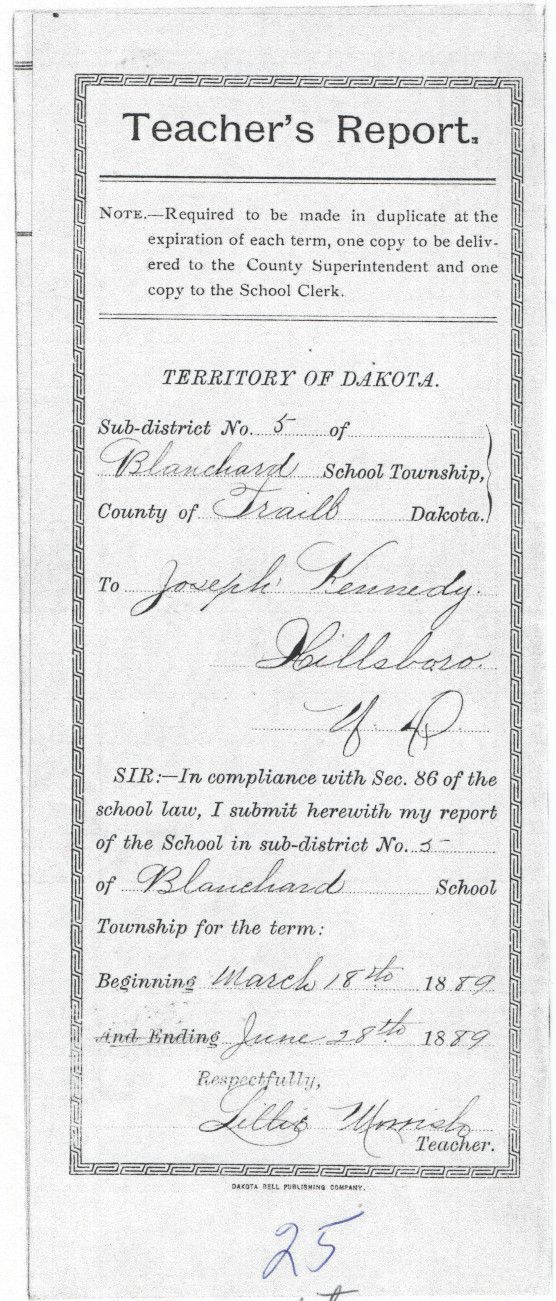 Teacher's Report.
NOTE.—Required to be made in duplicate at the
expiration of each term, one copy to be deliv-
ered to the County Superintendent and one
copy to the School Clerk.
TERRITORY OF DAKOTA.
Sub-district No. 5 of
Blanchard School Township,
County of Traill Dakota.
To Joseph Kennedy.
Hillsboro.
SIR:—In compliance with Sec. 86 of the
school law, I submit herewith my report
of the School in sub-district No. 5
of Blanchard School
Township for the term:
Beginning March 18th 1889
And Ending June 28th 1889
Respectfully,
Lillie Morrish
Teacher.
DAKOTA BELL PUBLISHING COMPANY.
25